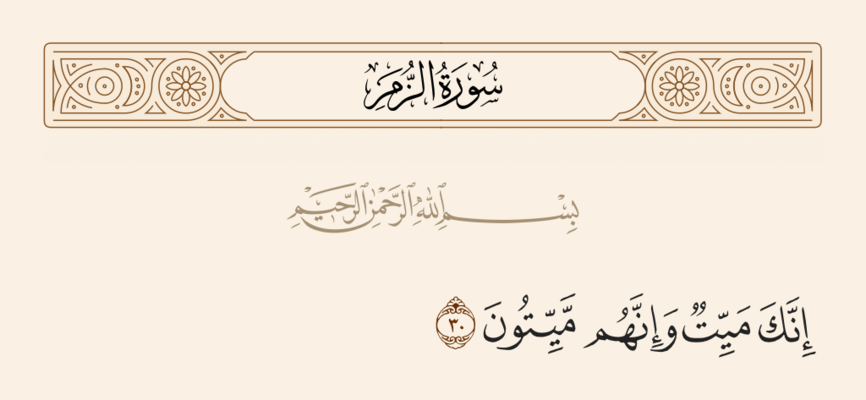 سُورَةُ الزُّمَرِ
بِسْمِ اللَّهِ الرَّحْمَٰنِ الرَّحِيمِ
إِنَّكَ مَيِّتٌ وَإِنَّهُم مَّيِّتُونَ ٣٠